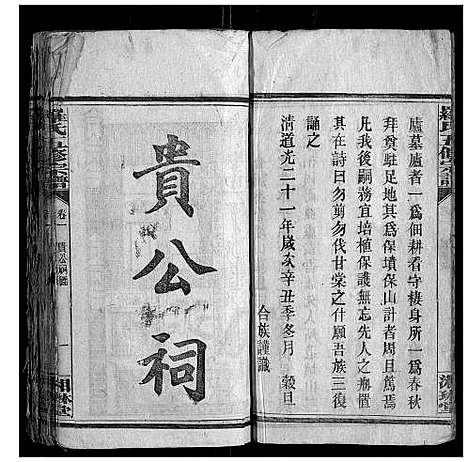 羅氏五修宗譜
廬墓廬者一爲佃耕看守棲身所一爲春秋
拜奠駐足地其爲保墳保山計者周且篤焉
凡我後嗣務宜培植保護無忘先人之塋置
其在詩曰勿剪勿伐甘棠之什願吾族三復
誦之
清道光二十一年歲次辛丑季冬月 穀旦
合族謹識
貴公祠
羅氏五修宗譜
卷一
貴公祠
一
湘琳堂